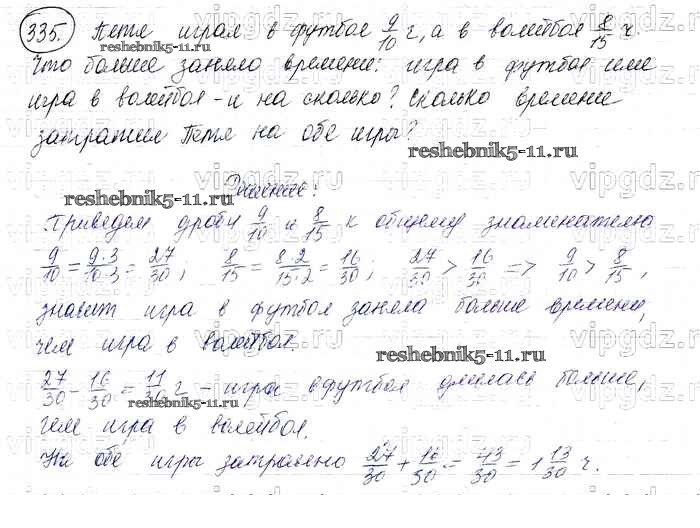 335. Петя играл в футбол 9/10 ч, а в волейбол 8/15 ч.
Что больше заняло времени: игра в футбол или
игра в волейбол - и на сколько? Сколько времени
затратил Петя на обе игры?
Решение:
Приведем дроби 9/10 и 8/15 к общему знаменателю
9/10 = 9·3/10·3 = 27/30; 8/15 = 8·2/15·2 = 16/30; 27/30 > 16/30 => 9/10 > 8/15,
значит игра в футбол заняла больше времени,
чем игра в волейбол.
27/30 - 16/30 = 11/30 ч - игра в футбол длилась больше,
чем игра в волейбол.
На обе игры затрачено 27/30 + 16/30 = 43/30 = 1 13/30 ч.
reshebnik5-11.ru
reshebnik5-11.ru
reshebnik5-11.ru
reshebnik5-11.ru
reshebnik5-11.ru
vipgdz.ru